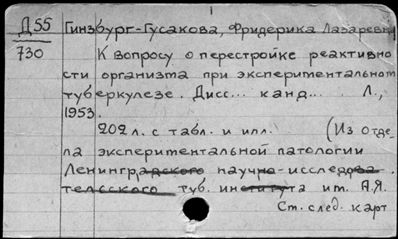 Д55 Гинзбург-Гусакова, Фридерика Лазаревн
730 К вопросу о перестройке реактивно
сти организма при экспериментальном
туберкулезе. Дисс... канд... Л.,
1953.
202 л. с табл. и илл. (Из отде
ла экспериментальной патологии
Ленинградского научно-исследова
тельского туб. института им. А.Я.
См. след. карт